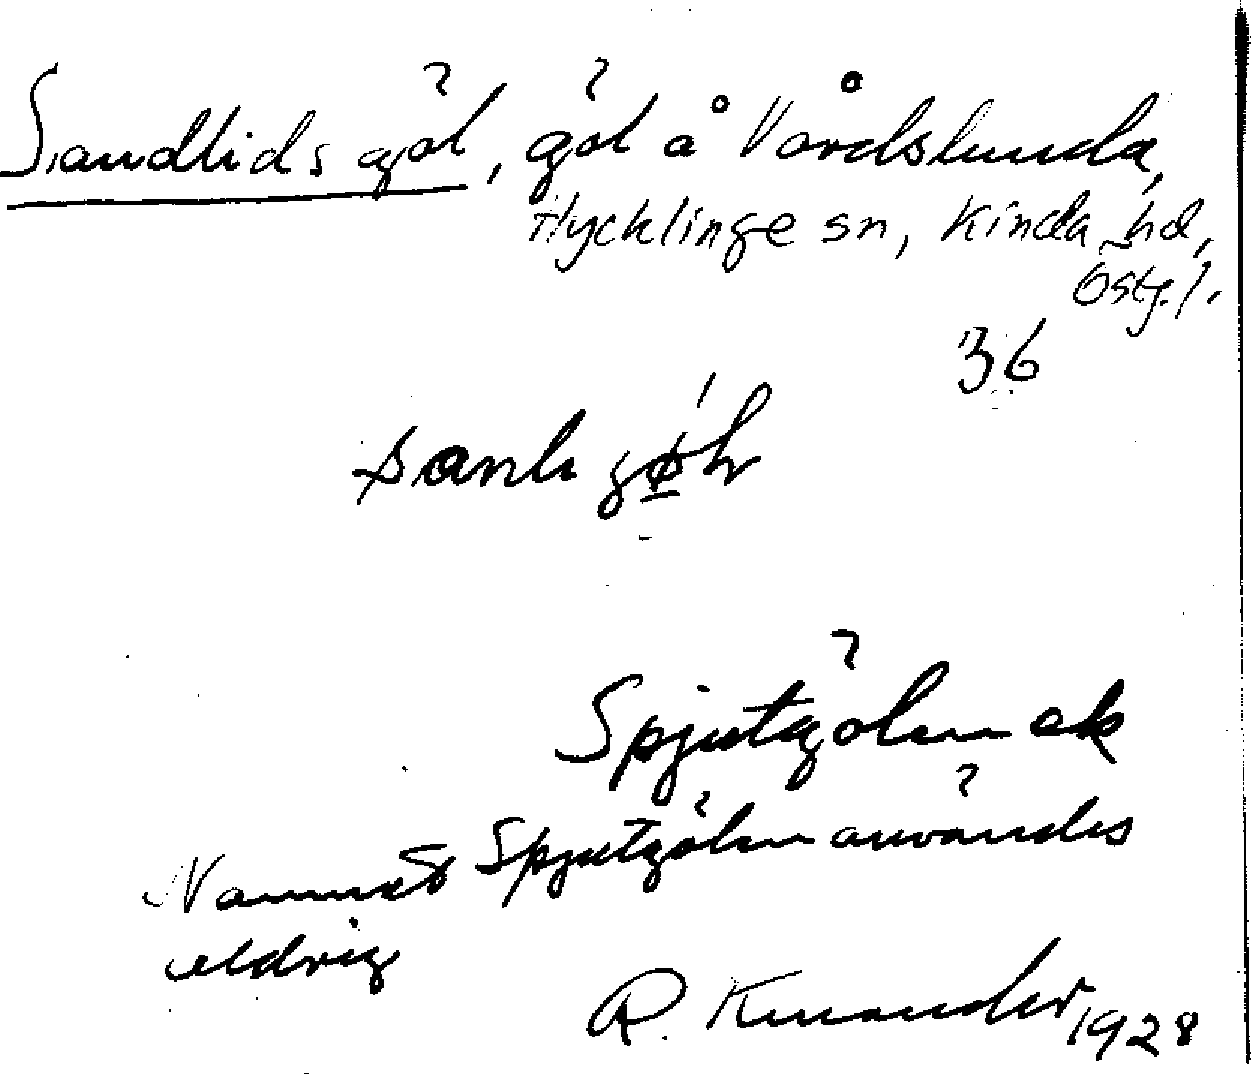 Sandlids göl, göl å Vårdslunda,
Hycklinge sn, Kinda hd,
Östg.l.
36
Spjutgölen ek
Namnet Spjutgölen användes
aldrig
R. Knander 1928